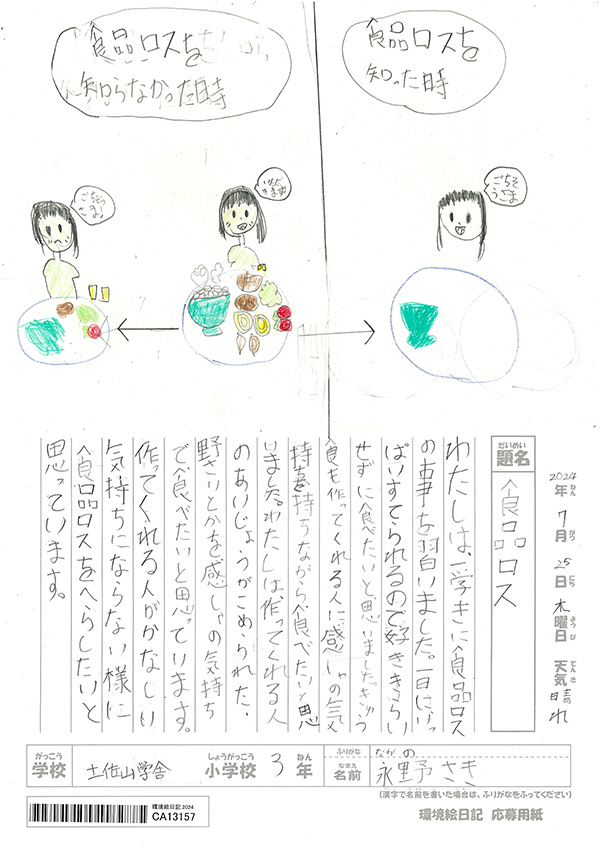 食品ロスを
知らなかった時
食品ロスを
知った時
ごちそう
さま!
いただ
きます
ごちそ
うさま
だいめい
題名
食品ロス
2024年 7月 25日 木曜日 天気 晴れ
ねん がつ にち ようび てんき
わたしは、一学きに食品ロス
の事を習いました。一日にいっ
ぱいすてられるので好ききらい
せずに食べたいと思いました。きゅう
食も作ってくれる人に感しゃの気
持ちを持ちながら食べたいと思
いました。わたしは、作ってくれる人
のあいじょうがこめられた、
野さいとかを感しゃの気持ち
で食べたいと思っています。
作ってくれる人がかなしい
気持ちにならない様に
食品ロスをへらしたいと
思っています。
がっこう
学校
土佐山学舎
しょうがっこう
小学校
3
ねん
年
ふりがな
ながの
なまえ
名前
永野さき
(漢字で名前を書いた場合は、ふりがなをふってください)
環境絵日記2024
CA13157
環境絵日記 応募用紙